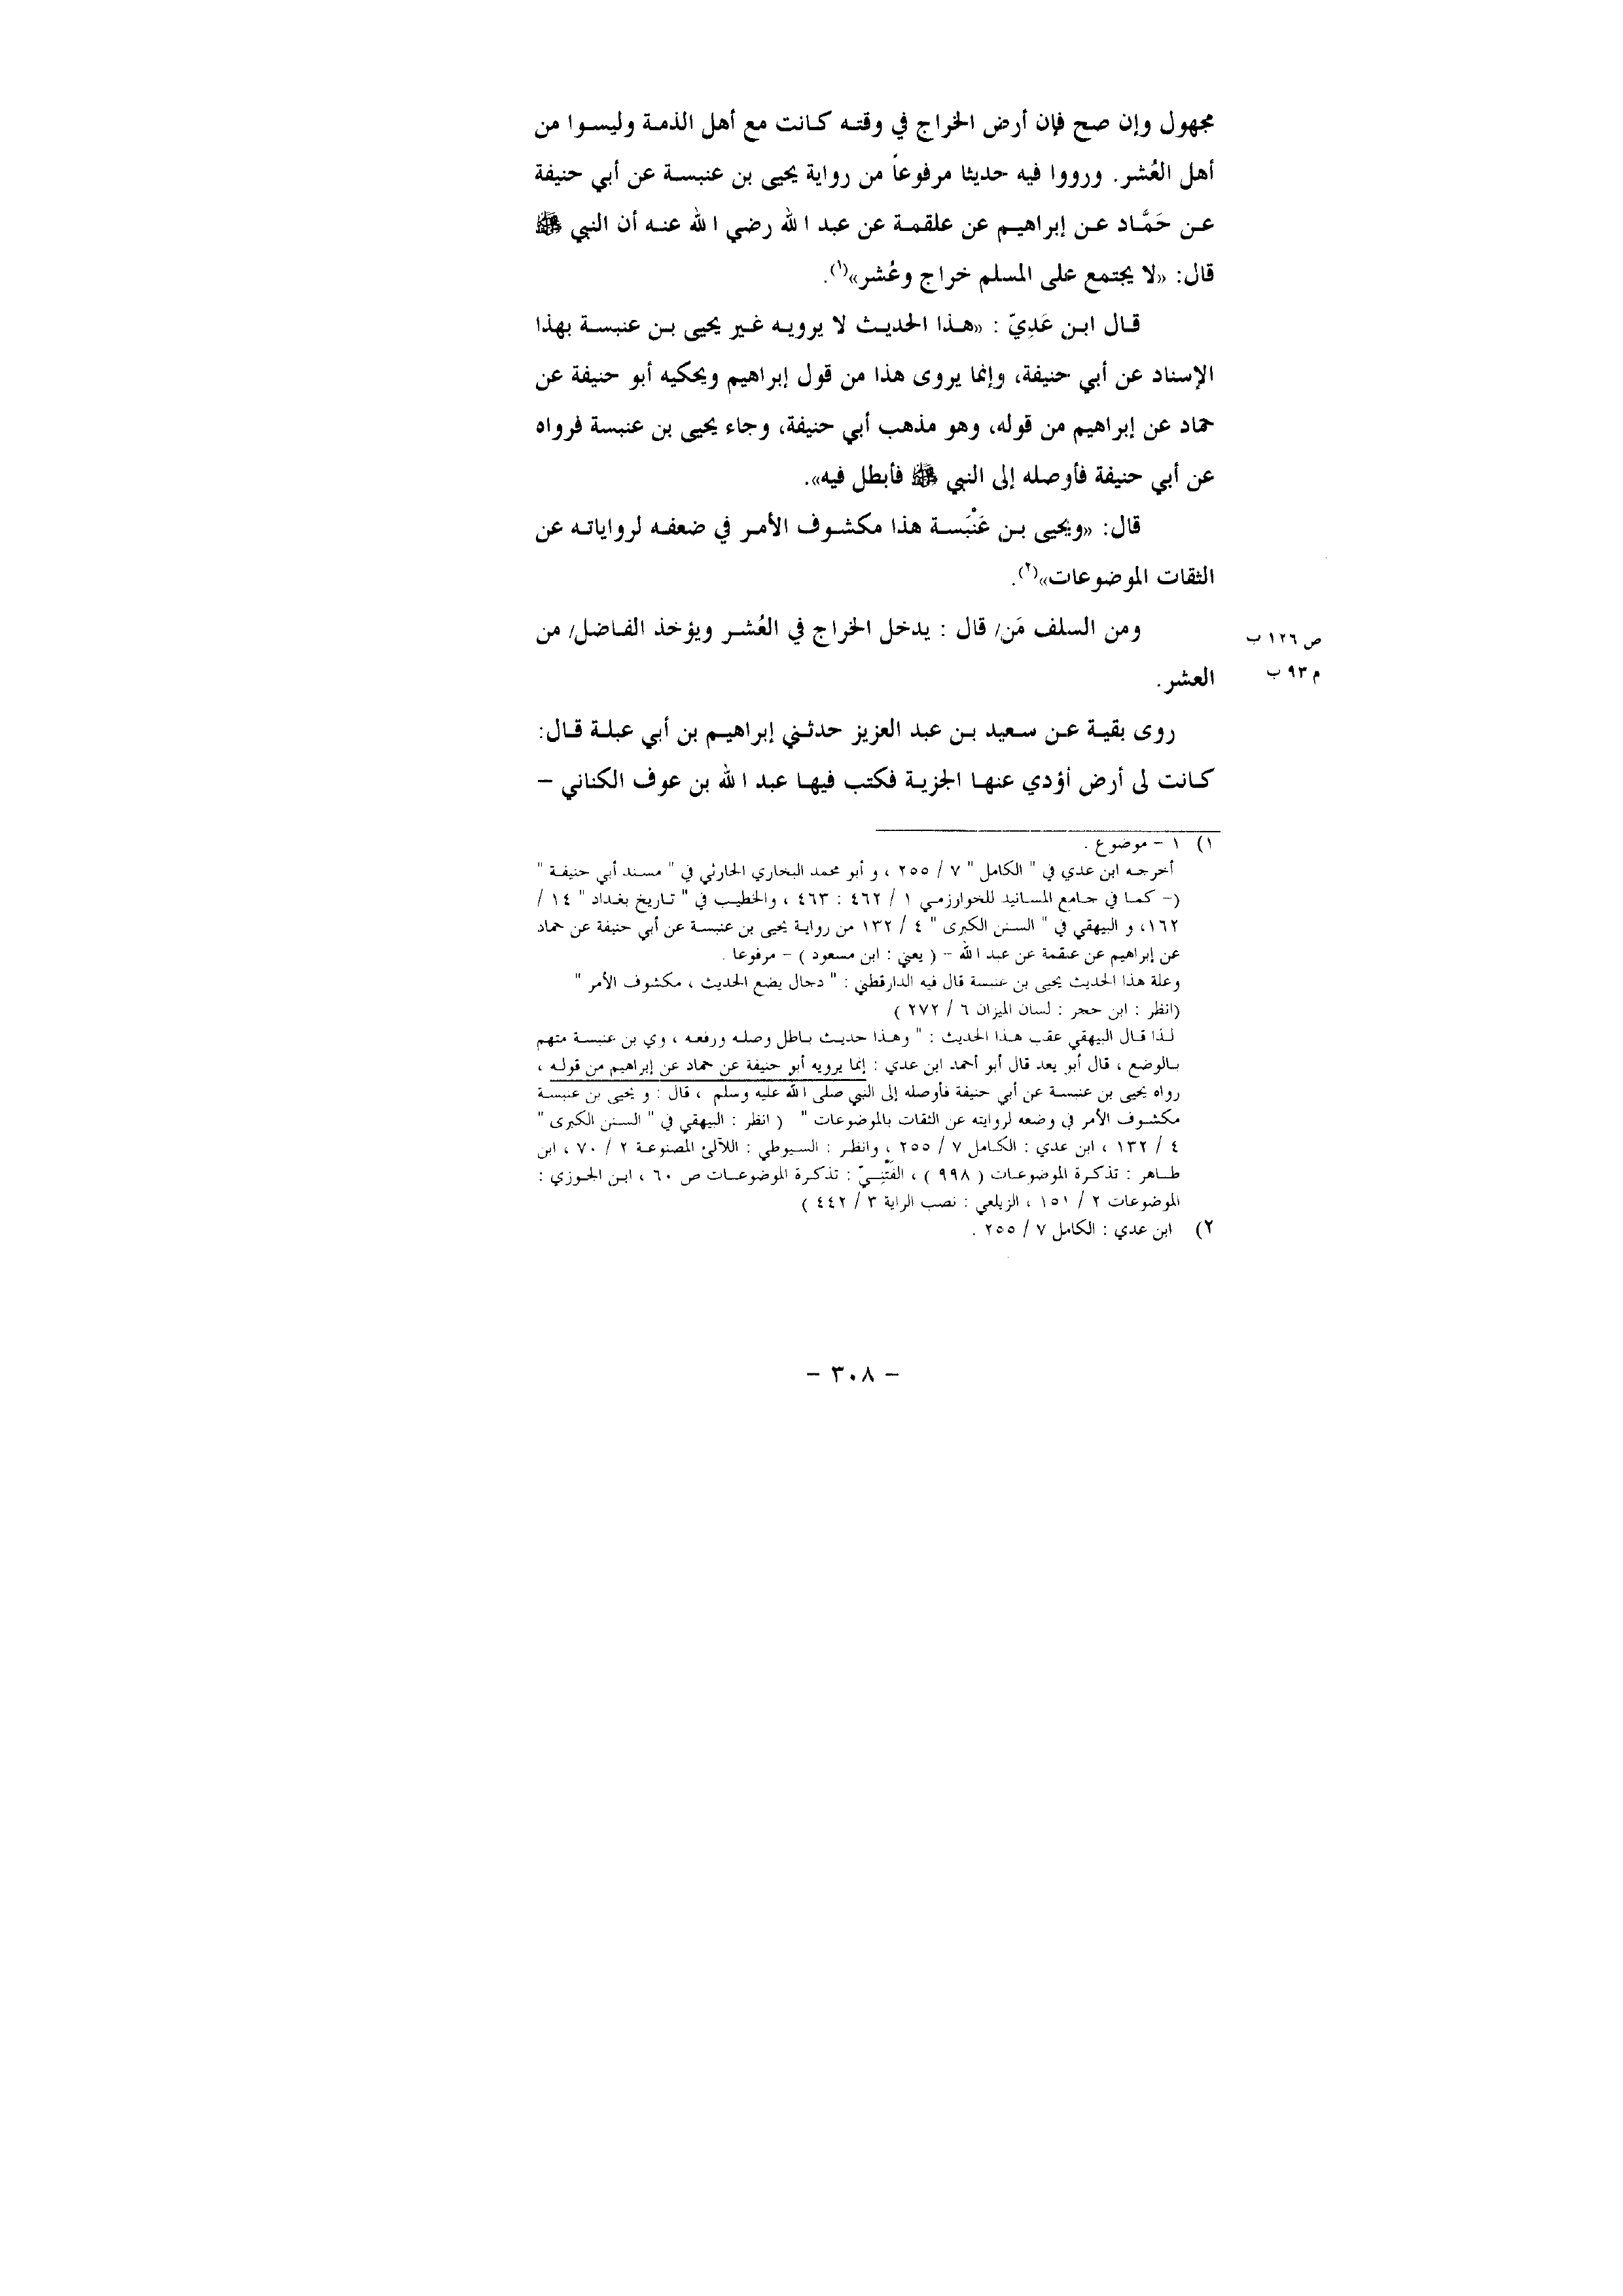 مجهول وإن صح فإن أرض الخراج في وقته كانت مع أهل الذمة وليسوا من
أهل العُشر. ورووا فيه حديثا مرفوعاً من رواية يحيى بن عنبسة عن أبي حنيفة
عن حَمَّاد عن إبراهيم عن علقمة عن عبد الله رضي الله عنه أن النبي ﷺ
قال: «لا يجتمع على المسلم خراج وعُشر»(١).
قال ابن عَدِيّ : «هذا الحديث لا يرويه غير يحيى بن عنبسة بهذا
الإسناد عن أبي حنيفة، وإنما يروى هذا من قول إبراهيم ويحكيه أبو حنيفة عن
حماد عن إبراهيم من قوله، وهو مذهب أبي حنيفة، وجاء يحيى بن عنبسة فرواه
عن أبي حنيفة فأوصله إلى النبي ﷺ فأبطل فيه».
قال: «ويحيى بن عَنْبَسة هذا مكشوف الأمر في ضعفه لرواياته عن
الثقات الموضوعات»(٢).
ومن السلف مَن/ قال : يدخل الخراج في العُشر ويؤخذ الفاضل/ من
ص ١٢٦ ب
العشر.
م ٩٣ ب
روى بقية عن سعيد بن عبد العزيز حدثني إبراهيم بن أبي عبلة قال:
كانت لى أرض أؤدي عنها الجزية فكتب فيها عبد الله بن عوف الكناني –
١) ١ - موضوع .
أخرجه ابن عدي في " الكامل " ٧ / ٢٥٥ ، و أبو محمد البخاري الحارثي في " مسند أبي حنيفة "
(- كما في جامع المسانيد للخوارزمي ١ / ٤٦٢ : ٤٦٣ ، والخطيب في " تاريخ بغداد " ١٤ /
١٦٢، و البيهقي في " السنن الكبرى " ٤ / ١٣٢ من رواية يحيى بن عنبسة عن أبي حنيفة عن حماد
عن إبراهيم عن عىقمة عن عبد الله - ( يعني : ابن مسعود ) - مرفوعا .
وعلة هذا الحديث يحيى بن عنبسة قال فيه الدارقطني : " دجال يضع الحديث ، مكشوف الأمر "
(انظر : ابن حجر : لسان الميزان ٦ / ٢٧٢ )
لذا قال البيهقي عقب هذا الحديث : " وهذا حديث باطل وصله ورفعه ، وي بن عنبسة متهم
بالوضع ، قال أبو يعد قال أبو أحمد ابن عدي : إنما يرويه أبو حنيفة عن حماد عن إبراهيم من قوله ،
رواه يحيى بن عنبسة عن أبي حنيفة فأوصله إلى النبي صلى الله عليه وسلم ، قال : و يحيى بن عنبسة
مكشوف الأمر في وضعه لروايته عن الثقات بالموضوعات " ( انظر : البيهقي في " السنن الكبرى "
٤ / ١٣٢ ، ابن عدي : الكامل ٧ / ٢٥٥ ، وانظر : السيوطي : اللآلئ المصنوعة ٢ / ٧٠ ، ابن
طاهر : تذكرة الموضوعات ( ٩٩٨ ) ، الفَتَّنِيّ : تذكرة الموضوعات ص ٦٠ ، ابن الجوزي :
الموضوعات ٢ / ١٥١ ، الزيلعي : نصب الراية ٣ / ٤٤٢ )
٢) ابن عدي : الكامل ٧ / ٢٥٥ .
- ٣٠٨ -